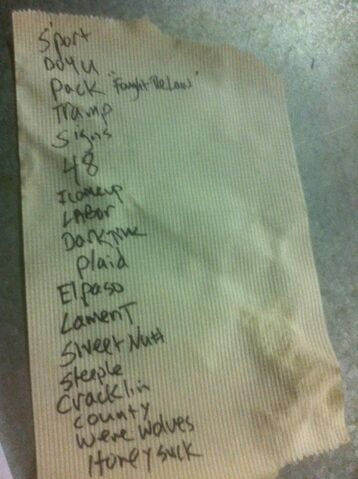 Sport
DO4U
Pack "Fought The Law"
Tramp
Signs
48
I come up
LABOR
Dark Time
Plaid
El paso
LamenT
Street Nutt
Steeple
Cracklin
County
Were Wolves
Honeysuck